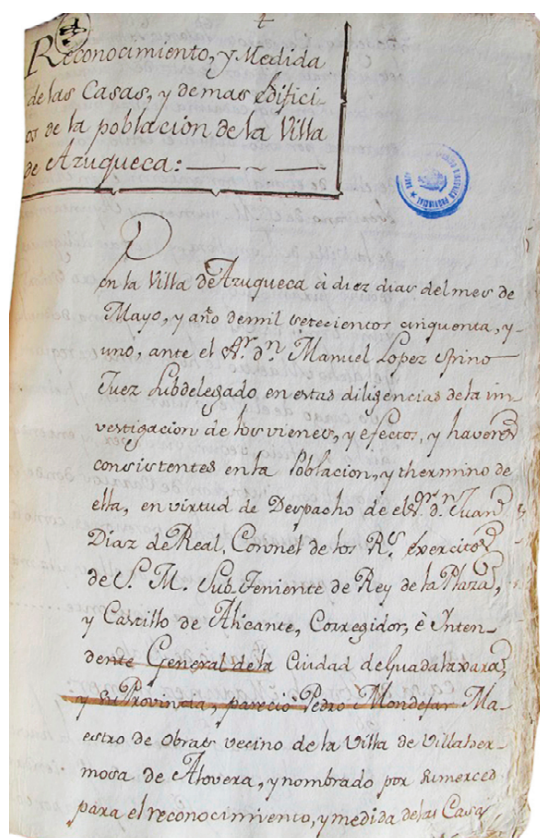 4
Reconocimiento, y Medida
de las Casas, y demas edifici-
os de la poblacion de la Villa
de Azuqueca:
En la Villa de Azuqueca à diez dias del mes de
Mayo, y año de mil setecientos cinquenta, y
uno, ante el Sr. dn. Manuel Lopez Spino
Juez Subdelegado en estas diligencias de la im-
vestigacion de los vienes, y efectos, y haveres
consistentes en la Poblacion, y thermino de
ella, en virtud de Despacho de el Sr. dn. Juan
Diaz de Real, Coronel de los Rs. exercitos
de S. M. Sub Teniente de Rey de la Plaza,
y Castillo de Alicante, Corregidor, è Inten-
dente General de la Ciudad de Guadalaxara,
y su Provincia, parecio Pedro Mondejar Ma-
estro de Obras vecino de la Villa de Villaher-
mosa de Alovera, y nombrado por su merced
para el reconocimiento, y medida de las Casas